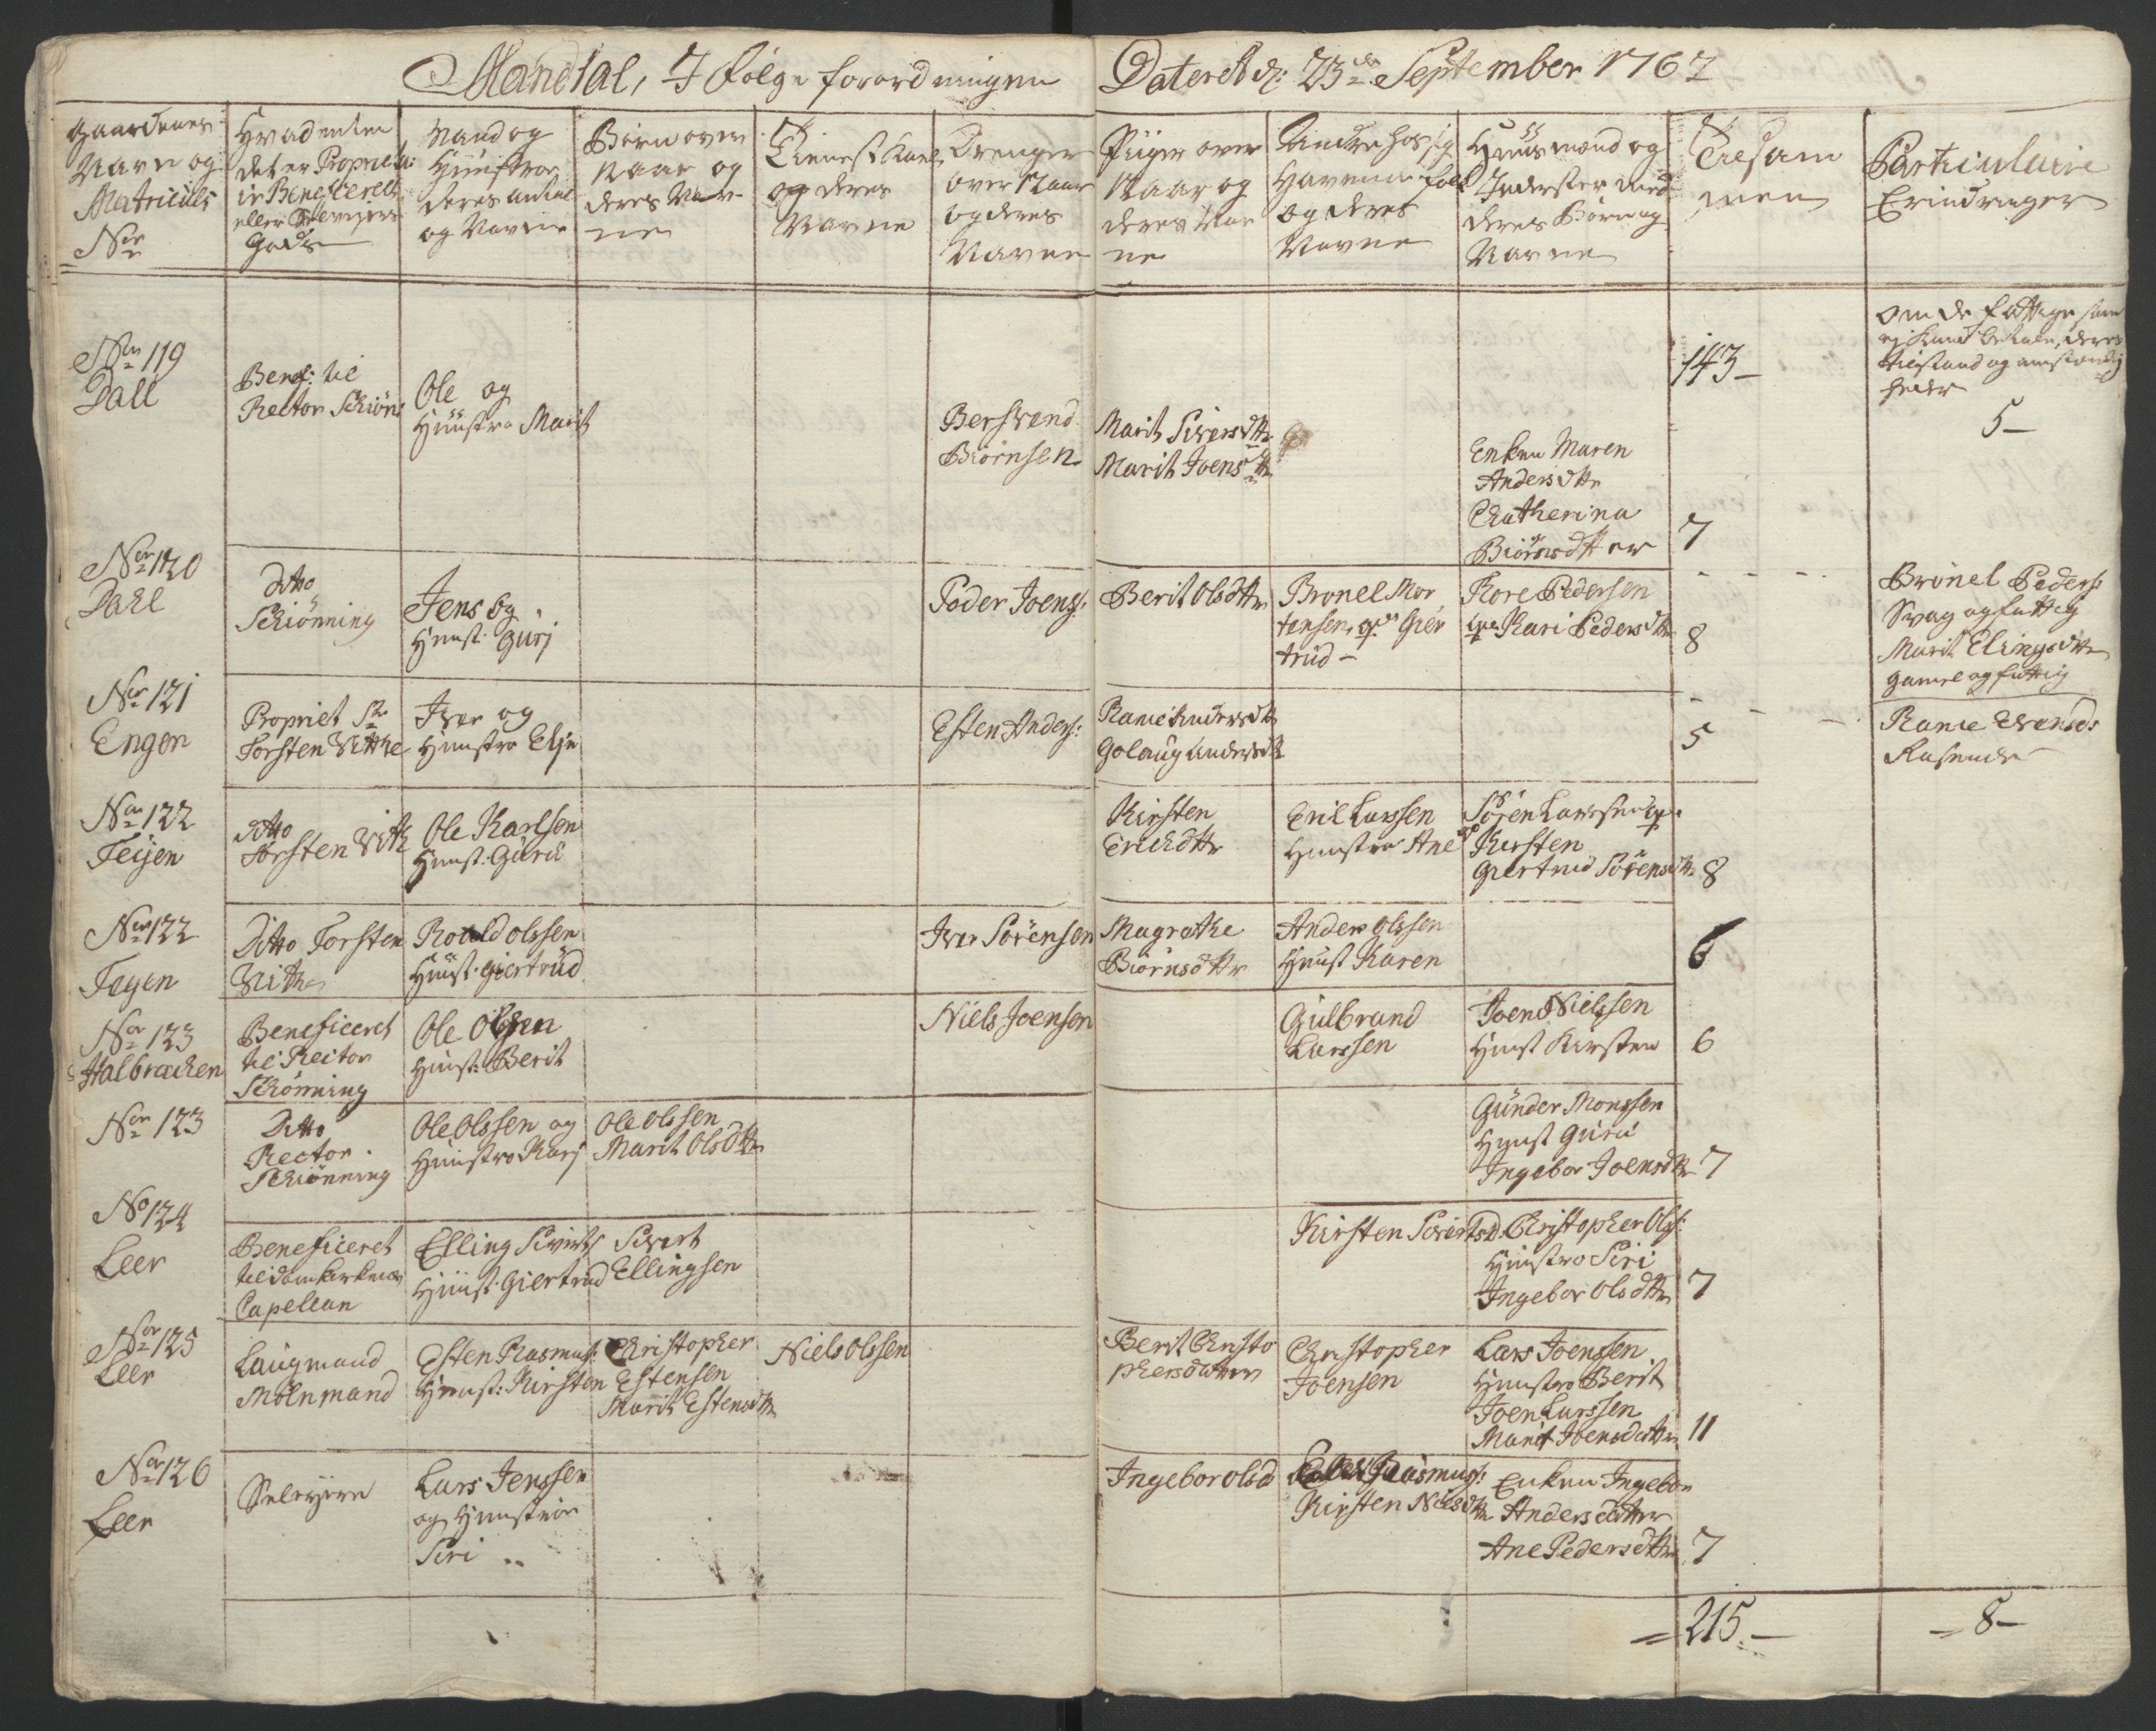 Mandtal, I følge forordningen Dateret d: 23de September 1762
Gaardenes Navn og Matriculs No
Hvad enten det er Propriet: ir Beneficeret eller Selvejer Gods
Mand og Hünstroe deres antal og Navne
Børn over 12 aar og deres Navne
Tienest Karle og deres Navne
Drenger over 12 aar og deres Navne
Piiger over 12 aar og deres Navne
Andre hos sig Havende folk og deres Navne
Huusmænd og Inderster med deres Børn og Navne
Tilsammen
Particulaire Erindringer
om de fattige som ej kand betale, deres tilstand og omstændigheder
143 –
5 –
Nor 119
Dall
Benef: til
Rector Schiøn:
Ole og
Hünstro Marit
Bersvend
Biörnsen
Marit Siversdtr
Marit Joensdtr
Enken Maren
Andersdtr
Chatherina
Biörnsdtter
7
Nor 120
Dahl
Ditto
Schiönning
Jens og
Hunst. Gurj
Peder Joens:
Berit Olsdtr
Bronel Mor
tensen, qv: Gier
trüd –
Tore Pedersen
qv: Kari Pedersdtr
8
Brönel Peders:
Svag og fattig
Marit Elingsdtr
gamel og fattig
Nor 121
Engen
Propriet Sr
Torsten Withe
Iver og
Hunstro Else
Esten Anders:
Ranie Andersdtr
Golaug Andersdtr
5
Ranie Evensd:
Rasende
Nor 122
Teijen
Ditto
Torsten With
Ole Karlsen
Hunst. Guru
Kirsten
Erichdtr
Eril Larssen
Hunstro Ane
Sören Larssen qv:
Kirsten
Giertrud Sörensdtr
8
Nor 122
Tegen
Ditto Torsten
With
Roald Olssen
Hünst. Giertrüd
Iver Sörensen
Magrethe
Biörnsdtr
Anders Olssen
Hunst Karen
6
Nor 123
Halbrachen
Beneficeret
til Rector
Schönning
Ole Olsen
Hunst: Berit
Niels Joensen
Gülbrand
Larssen
Joen Nielssen
Hust Kirsten
6
Nor 123
Ditto
Rector
Schiönning
Ole Olssen og
Hunstro Karj
Ole Olssen
Marit Olsdtr
Günder Monssen
Hunst Guru
Ingebor Joensdtr
7
No 124
Leer
Beneficeret
til Domkirkens
Capellan
Elling Sivertz
Hünst. Giertrud
Sivert
Ellingsen
Kirsten Sivertsd.
Christopher Ols:
Hünstro Siri
Ingebor Olsdtr
7
Nor 125
Leer
Laugmand
Möinmand
Esten Rasmus:
Hunst: Kirsten
Christopher
Estensen
Marit Estensdtr
Niels Olssen
Berit Christo
phersdatter
Christopher
Joensen
Lars Joenssen
Hunstro Berit
Joen Larssen
Marit Joensdatr
11
Nor 126
Leer
Selvejere
Lars Jenssen
og Hunstroe
Siri
Ingebor Olsd
Rasmus:
Kirsten Nilsdtr
Enken Ingebor
Andersdatter
Ane Pedersdtr
7
= 215. –
= 8 –